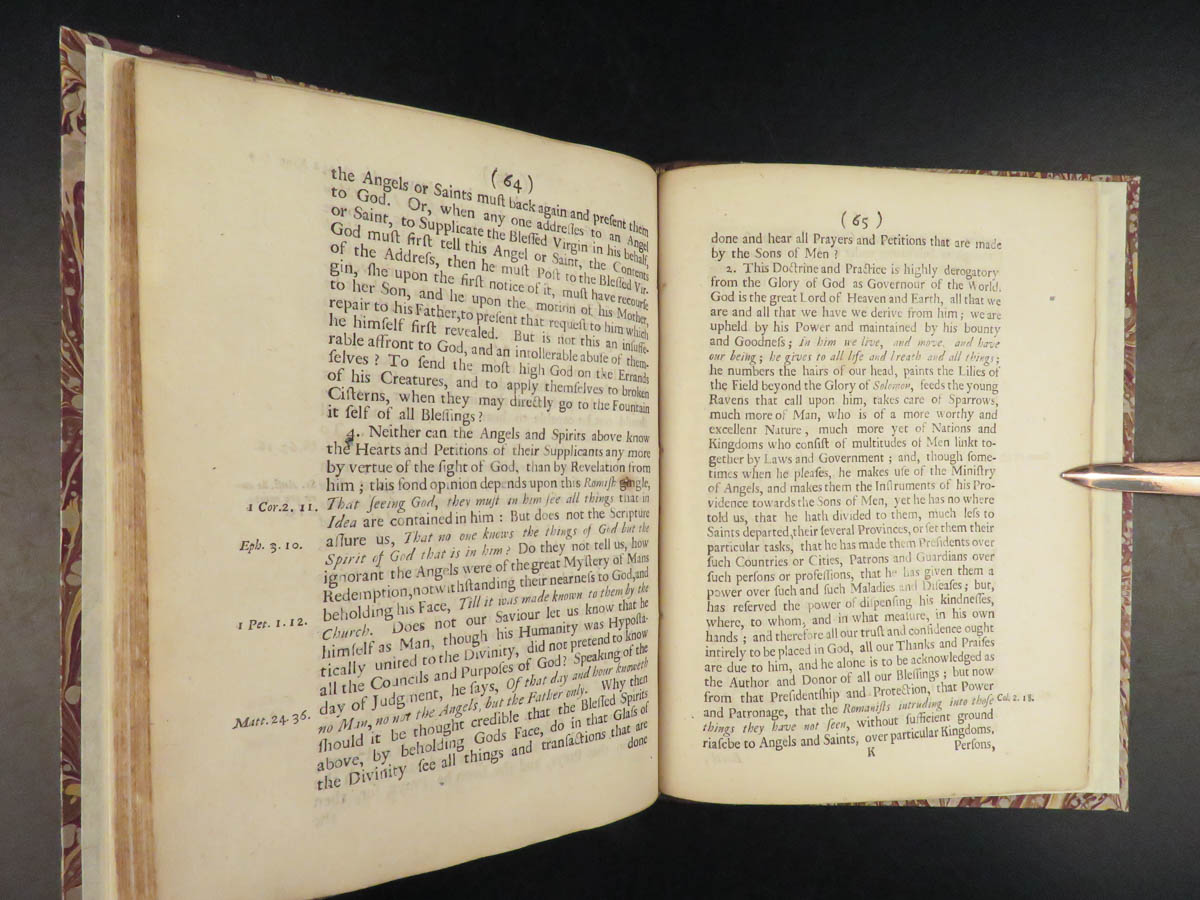 (64)
the Angels or Saints muſt back again and preſent them
to God. Or, when any one addreſſes to an Angel
or Saint, to Supplicate the Bleſſed Virgin in his behalf,
God muſt firſt tell this Angel or Saint, the Contents
of the Addreſs, then he muſt Poſt to the Bleſſed Vir-
gin, ſhe upon the firſt notice of it, muſt have recourſe
to her Son, and he upon the motion of his Mother,
repair to his Father, to preſent that requeſt to him which
he himſelf firſt revealed. But is not this an inſuffe-
rable affront to God, and an intollerable abuſe of them-
ſelves? To ſend the moſt high God on the Errands
of his Creatures, and to apply themſelves to broken
Ciſterns, when they may directly go to the Fountain
it ſelf of all Bleſſings?
4. Neither can the Angels and Spirits above know
the Hearts and Petitions of their Supplicants any more
by vertue of the ſight of God, than by Revelation from
him; this fond opinion depends upon this Romiſh
1 Cor. 2. 11. That ſeeing God, they muſt in him ſee all things that in
Idea are contained in him: But does not the Scripture
aſſure us, That no one knows the things of God but the
Eph. 3. 10. Spirit of God that is in him? Do they not tell us, how
ignorant the Angels were of the great Myſtery of Mans
Redemption, notwithſtanding their nearneſs to God, and
beholding his Face, Till it was made known to them by the
1 Pet. 1. 12. Church. Does not our Saviour let us know that he
himſelf as Man, though his Humanity was Hypoſta-
tically united to the Divinity, did not pretend to know
all the Councils and Purpoſes of God? Speaking of the
day of Judgment, he ſays, Of that day and hour knoweth
Matt. 24. 36. no Man, no not the Angels, but the Father only. Why then
ſhould it be thought credible that the Bleſſed Spirits
above, by beholding Gods Face, do in that Glaſs of
the Divinity ſee all things and tranſactions that are
done
(65)
done and hear all Prayers and Petitions that are made
by the Sons of Men?
2. This Doctrine and Practice is highly derogatory
from the Glory of God as Governour of the World.
God is the great Lord of Heaven and Earth, all that we
are and all that we have we derive from him; we are
upheld by his Power and maintained by his bounty
and Goodneſs; In him we live, and move, and have
our being; he gives to all life and breath and all things;
he numbers the hairs of our head, paints the Lilies of
the Field beyond the Glory of Solomon, feeds the young
Ravens that call upon him, takes care of Sparrows,
much more of Man, who is of a more worthy and
excellent Nature, much more yet of Nations and
Kingdoms who conſiſt of multitudes of Men linkt to-
gether by Laws and Government; and, though ſome-
times when he pleaſes, he makes uſe of the Miniſtry
of Angels, and makes them the Inſtruments of his Pro-
vidence towards the Sons of Men, yet he has no where
told us, that he hath divided to them, much leſs to
Saints departed, their ſeveral Provinces, or ſet them their
particular tasks, that he has made them Preſidents over
ſuch Countries or Cities, Patrons and Guardians over
ſuch perſons or profeſſions, that he has given them a
power over ſuch and ſuch Maladies and Diſeaſes; but,
has reſerved the power of diſpenſing his kindneſſes,
where, to whom, and in what meaſure, in his own
hands; and therefore all our truſt and confidence ought
intirely to be placed in God, all our Thanks and Praiſes
are due to him, and he alone is to be acknowledged as
the Author and Donor of all our Bleſſings; but now
from that Preſidentſhip and Protection, that Power
and Patronage, that the Romaniſts intruding into thoſe Col. 2. 18.
things they have not ſeen, without ſufficient ground
riaſebe to Angels and Saints, over particular Kingdoms,
K Perſons,